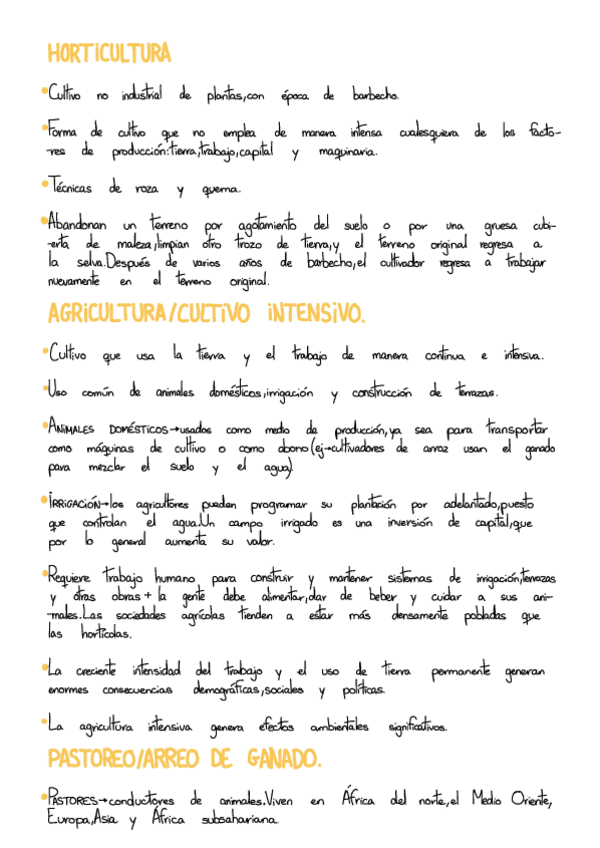 HORTICULTURA
•Cultivo no industrial de plantas, con época de barbecho.
•Forma de cultivo que no emplea de manera intensa cualesquiera de los facto-
-res de producción: tierra, trabajo, capital y maquinaria.
•Técnicas de roza y quema.
•Abandonan un terreno por agotamiento del suelo o por una gruesa cubi-
-erta de maleza, limpian otro trozo de tierra, y el terreno original regresa a
la selva. Después de varios años de barbecho, el cultivador regresa a trabajar
nuevamente en el terreno original.
AGRICULTURA/CULTIVO INTENSIVO.
•Cultivo que usa la tierra y el trabajo de manera continua e intensiva.
•Uso común de animales domésticos, irrigación y construcción de terrazas.
•ANIMALES DOMÉSTICOS→usados como medio de producción, ya sea para transportar
como máquinas de cultivo o como abono (ej→cultivadores de arroz usan el ganado
para mezclar el suelo y el agua).
•IRRIGACIÓN→los agricultores pueden programar su plantación por adelantado, puesto
que controlan el agua. Un campo irrigado es una inversión de capital, que
por lo general aumenta su valor.
•Requiere trabajo humano para construir y mantener sistemas de irrigación, terrazas
y otras obras + la gente debe alimentar, dar de beber y cuidar a sus ani-
-males. Las sociedades agrícolas tienden a estar más densamente pobladas que
las hortícolas.
•La creciente intensidad del trabajo y el uso de tierra permanente generan
enormes consecuencias demográficas, sociales y políticas.
•La agricultura intensiva genera efectos ambientales significativos.
PASTOREO/ARREO DE GANADO.
•PASTORES→conductores de animales. Viven en África del norte, el Medio Oriente,
Europa, Asia y África subsahariana